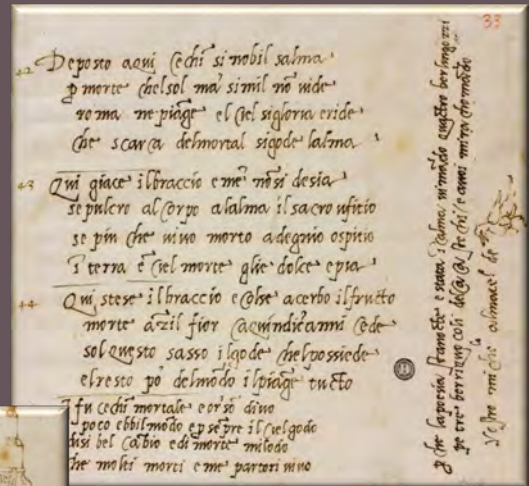 33
42 Deposto aqui Cechi si nobil salma
p morte chelsol ma simil nō vide
roma ne piāge el ciel sigloria eride
che scarca delmortal sigode lalma
43 Qui giace ilbraccio e mē nōsi desia
sepulcro al corpo alalma il sacro ufitio
se piu che vivo morto a degnio ospitio
ī terra e ciel morte glie dolce e pia
44 Qui stese ilbraccio e cholse acerbo ilfructo
morte āzil fior caquindici anni cede
sol questo sasso ilgode chelpossiede
elresto po delmōdo ilpiāge tucto
I fu cechi mortale e or so divo
poco ebbil mōdo e p sēpre il ciel godo
disi bel cābio e di morte mi lodo
che molti morti e me partori vivo
p che lapoesia stanocte e stata ī calma vi mādo quactro berlingozzi
pe tre berriquocoli del
Vostro al macel de